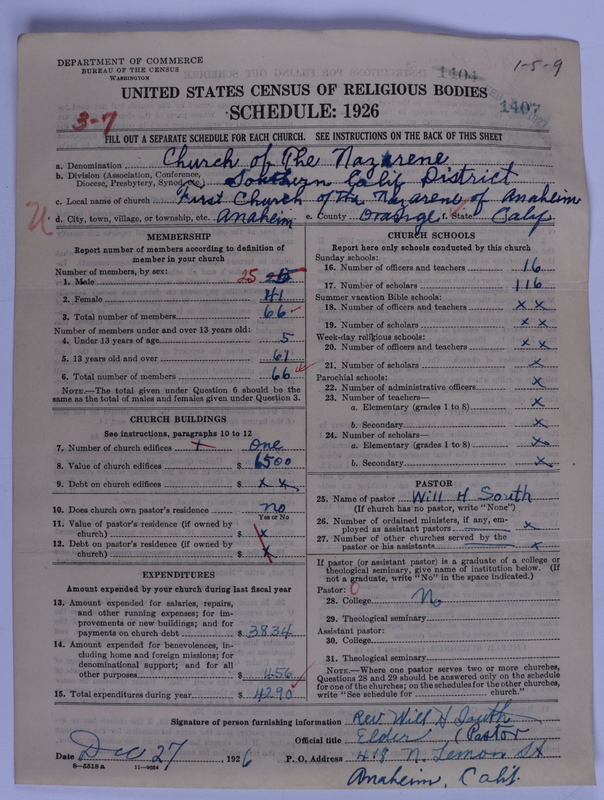 DEPARTMENT OF COMMERCE
BUREAU OF THE CENSUS
WASHINGTON
1404
1-5-9
UNITED STATES CENSUS OF RELIGIOUS BODIES
SCHEDULE: 1926
1407
3-7
FILL OUT A SEPARATE SCHEDULE FOR EACH CHURCH. SEE INSTRUCTIONS ON THE BACK OF THIS SHEET
a. Denomination Church of The Nazarene
b. Division (Association, Conference, Diocese, Presbytery, Synod, etc.) Southern Calif District
c. Local name of church First Church of the Nazarene of Anaheim
d. City, town, village, or township, etc. Anaheim e. County Orange f. State Calif
MEMBERSHIP
Report number of members according to definition of member in your church
Number of members, by sex:
1. Male 25
2. Female 41
3. Total number of members 66
Number of members under and over 13 years old:
4. Under 13 years of age 5
5. 13 years old and over 61
6. Total number of members 66
NOTE.—The total given under Question 6 should be the same as the total of males and females given under Question 3.
CHURCH BUILDINGS
See instructions, paragraphs 10 to 12
7. Number of church edifices one
8. Value of church edifices $ 6500
9. Debt on church edifices $ x x
10. Does church own pastor's residence no
Yes or No
11. Value of pastor's residence (if owned by church) $ x
12. Debt on pastor's residence (if owned by church) $ x
EXPENDITURES
Amount expended by your church during last fiscal year
13. Amount expended for salaries, repairs, and other running expenses; for improvements or new buildings; and for payments on church debt $ 3834
14. Amount expended for benevolences, including home and foreign missions; for denominational support; and for all other purposes $ 456
15. Total expenditures during year $ 4290
CHURCH SCHOOLS
Report here only schools conducted by this church
Sunday schools:
16. Number of officers and teachers 16
17. Number of scholars 116
Summer vacation Bible schools:
18. Number of officers and teachers x x
19. Number of scholars x x
Week-day religious schools:
20. Number of officers and teachers x x
21. Number of scholars x
Parochial schools:
22. Number of administrative officers x
23. Number of teachers—
a. Elementary (grades 1 to 8) x
b. Secondary x
24. Number of scholars—
a. Elementary (grades 1 to 8) x
b. Secondary x
PASTOR
25. Name of pastor Will H South
(If church has no pastor, write "None")
26. Number of ordained ministers, if any, employed as assistant pastors x
27. Number of other churches served by the pastor or his assistants x
If pastor (or assistant pastor) is a graduate of a college or theological seminary, give name of institution below. (If not a graduate, write "No" in the space indicated.)
Pastor: 0
28. College No
29. Theological seminary
Assistant pastor:
30. College
31. Theological seminary
NOTE.—Where one pastor serves two or more churches, Questions 28 and 29 should be answered only on the schedule for one of the churches; on the schedules for the other churches, write "See schedule for church."
Signature of person furnishing information Rev. Will H South
Official title Elder (Pastor
Date Dec 27, 1926 P. O. Address 418 N. Lemon St
8-5518 a 11-9064
Anaheim, Calif.